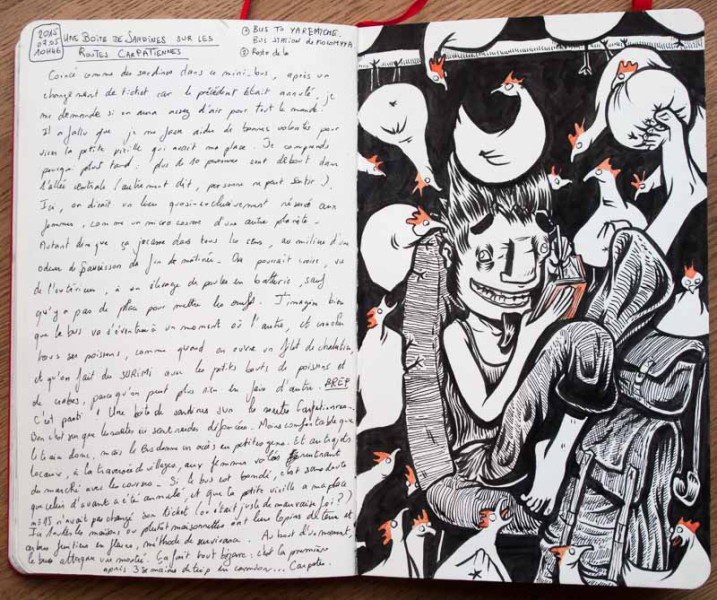 2015
07.05
10H46
UNE BOITE DE SARDINES SUR LES
ROUTES CARPATIENNES
① BUS TO YAREMCHE.
BUS STATION DE KOLOMYYA
② Reste de la
Coincé comme des sardines dans ce mini-bus, après un
changement de ticket car le précédent était annulé, je
me demande si on aura assez d'air pour tout le monde.
Il a fallu que je me fasse aider de bonnes volontés pour
virer la petite vieille qui avait ma place. Je comprends
pourquoi plus tard : plus de 10 personnes sont debout dans
l'allée centrale (autrement dit, personne ne peut sortir).
Ici, on dirait un lieu quasi-exclusivement réservé aux
femmes, comme un microcosme d'une autre planète.
Autant dire que ça jacasse dans tous les sens, au milieu d'une
odeur de saucisson de fin de matinée. On pourrait croire, vu
de l'extérieur, à un élevage de poules en batterie, sauf
qu'y a pas de place pour mettre les œufs. J'imagine bien
que le bus va s'éventrer à un moment où l'autre, et
tous ses poissons, comme quand on ouvre un filet de chalutier,
et qu'on fait du SURIMI avec les petits bouts de poissons et
de crabes, parce qu'on peut plus rien en faire d'autre.
C'est parti ! Une boîte de sardines sur les routes
Bon c'est vrai que les routes ici sont défoncées. Moins confortable que
le train donc, mais le bus donne un accès en petites gens. Et
locaux, à la traversée de villages, aux femmes
du marché avec les courses. Si le bus est bondé, c'est sans doute
que celui d'avant a été annulé, et que la petite vieille à ma place
n'avait pas changé son ticket (ou c'était juste de mauvaise foi ?)
Ici toutes les maisons ou plutôt maisonnettes ont leur lopin de terre et
arbres fruitiers en fleurs, méthode de survivance. Au bout d'un moment,
le bus attaque une montée. Ça fait tout bizarre : c'est la première
après 3 semaines de trip en